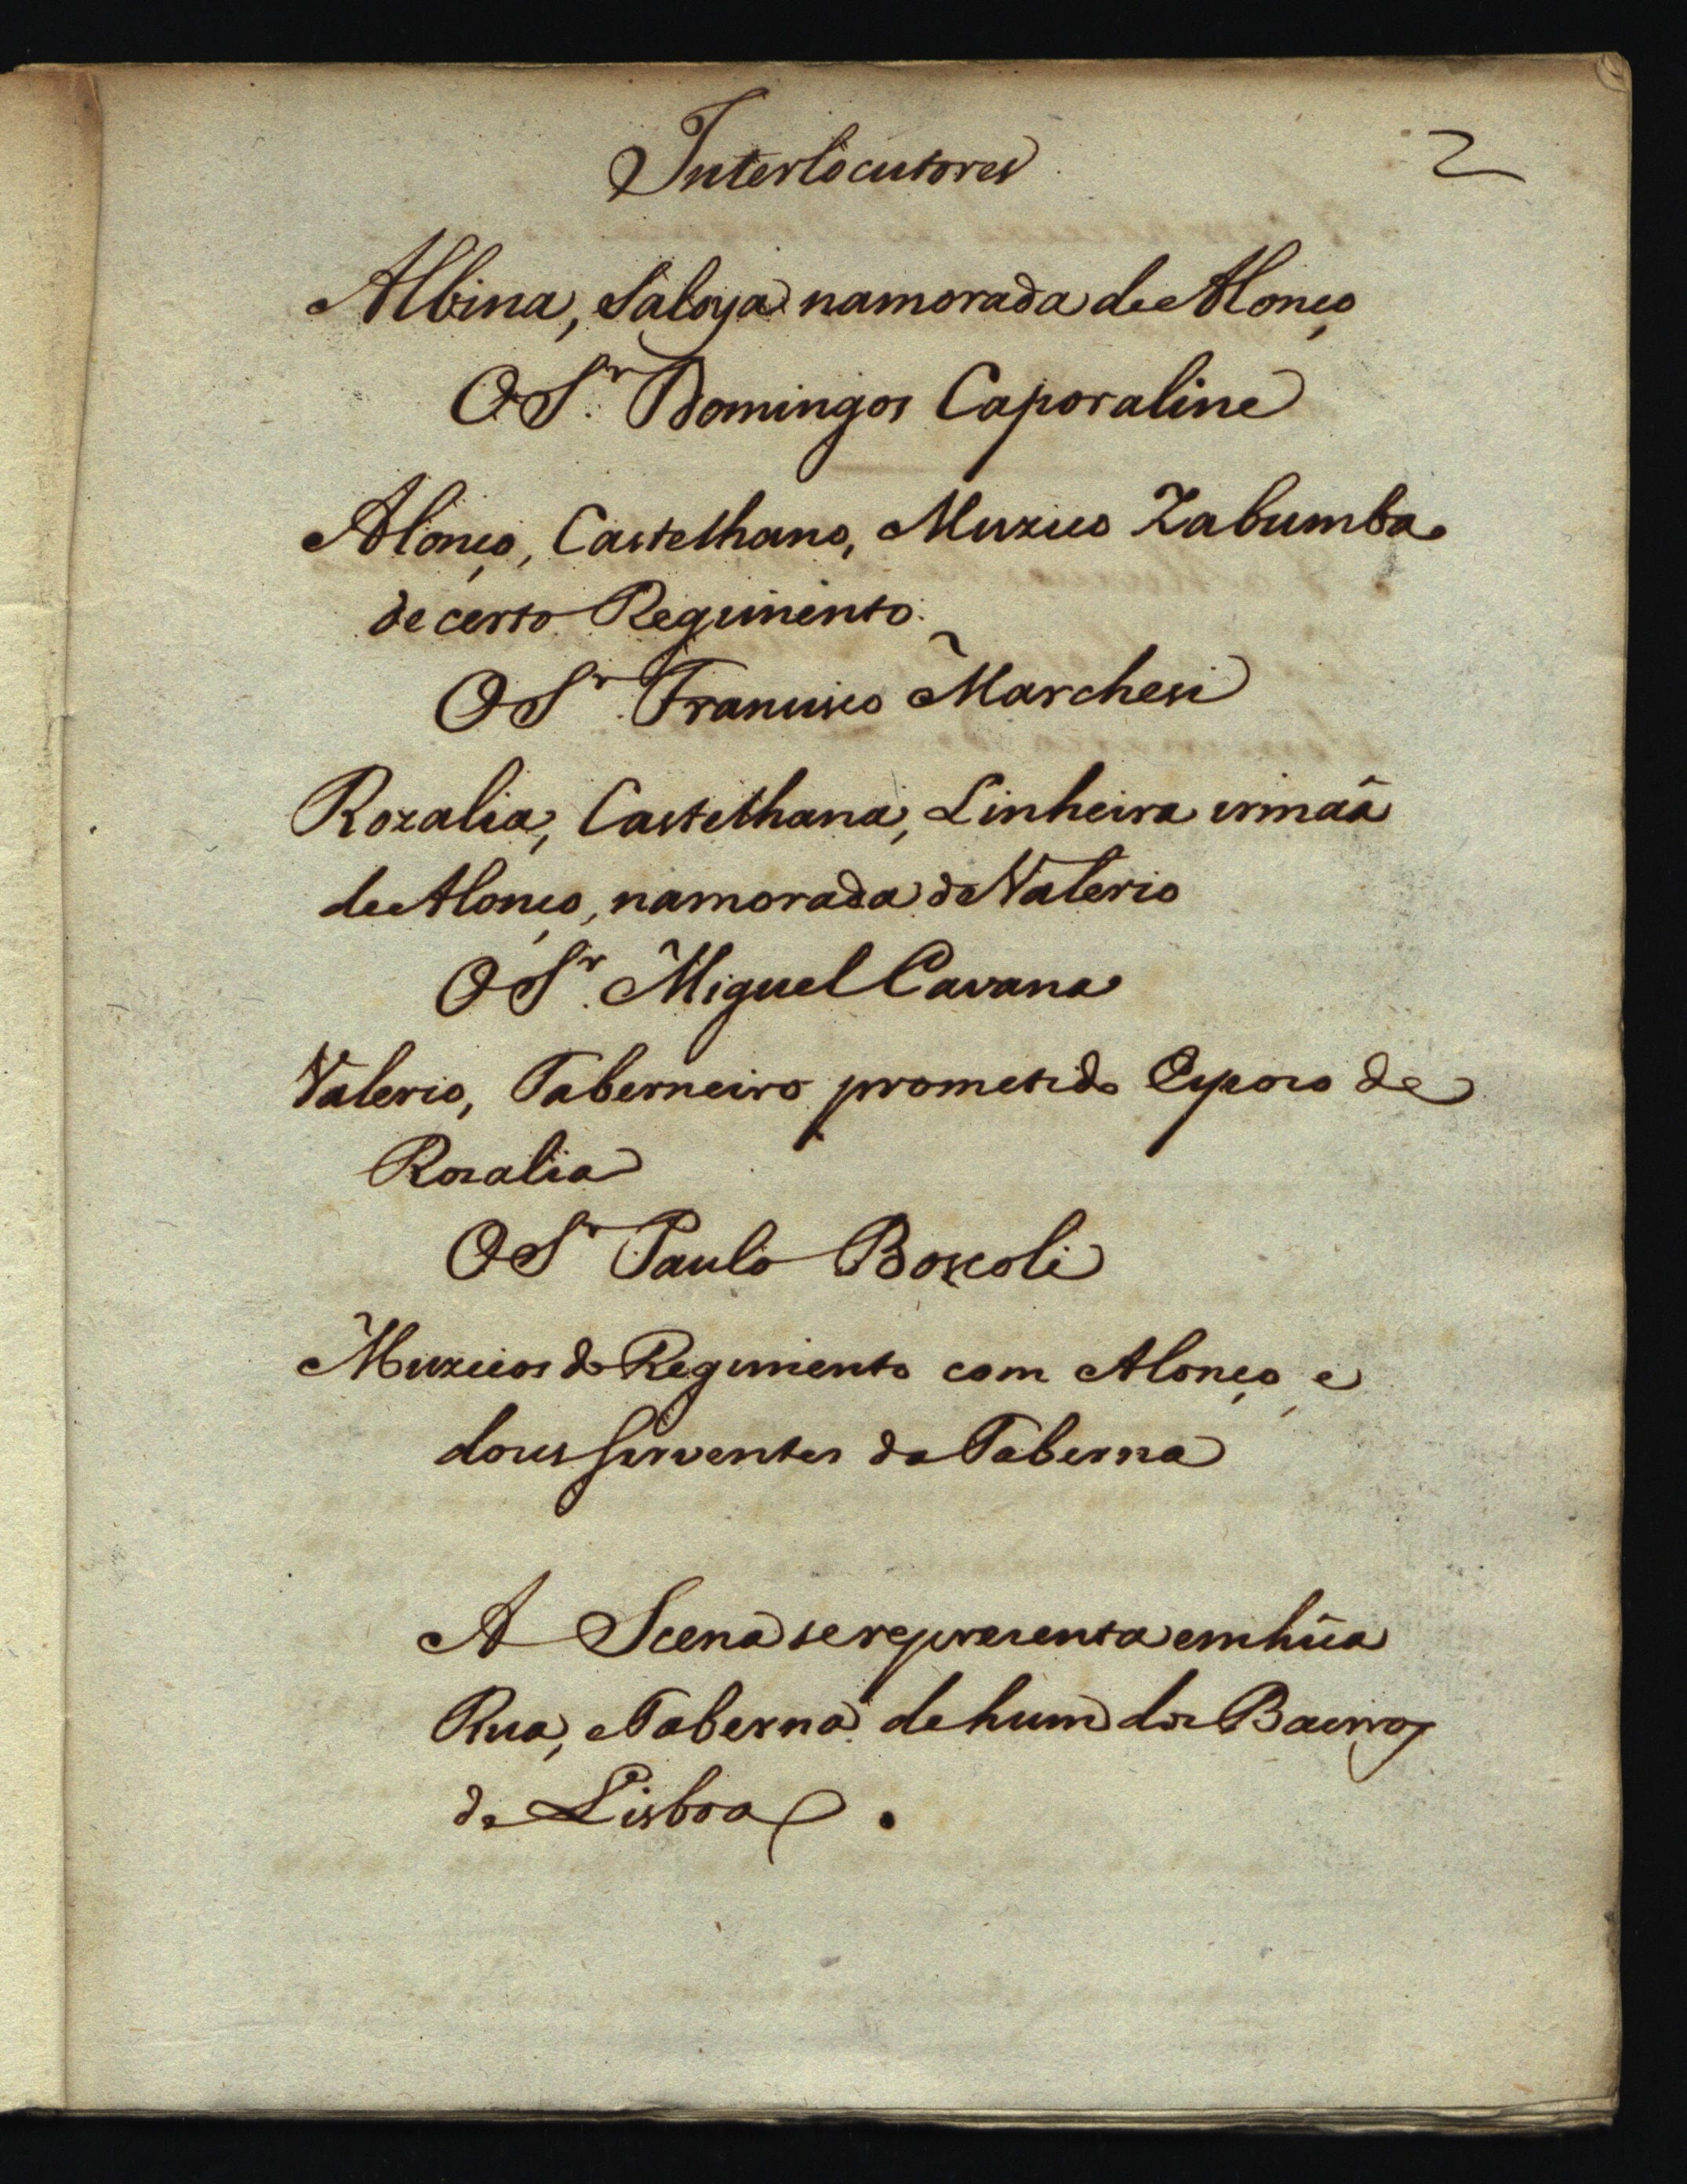 Interlocutores
2
Albina, Saloya namorada de Alonço
O Sr. Domingos Caporaline
Alonço, Castelhano, Muzico Zabumba
de certo Regimento.
O Sr. Francisco Marchesi
Rozalia, Castelhana, Linheira irmaã
de Alonço, namorada de Valerio
O Sr. Miguel Cavana
Valerio, Taberneiro prometido Espozo de
Rozalia
O Sr Paulo Boscoli
Muzicos do Regimento com Alonço, e
dous serventes da Taberna
A Scena se representa em hũa
Rua, e Taberna de hum dos Bairros
de Lisboa.